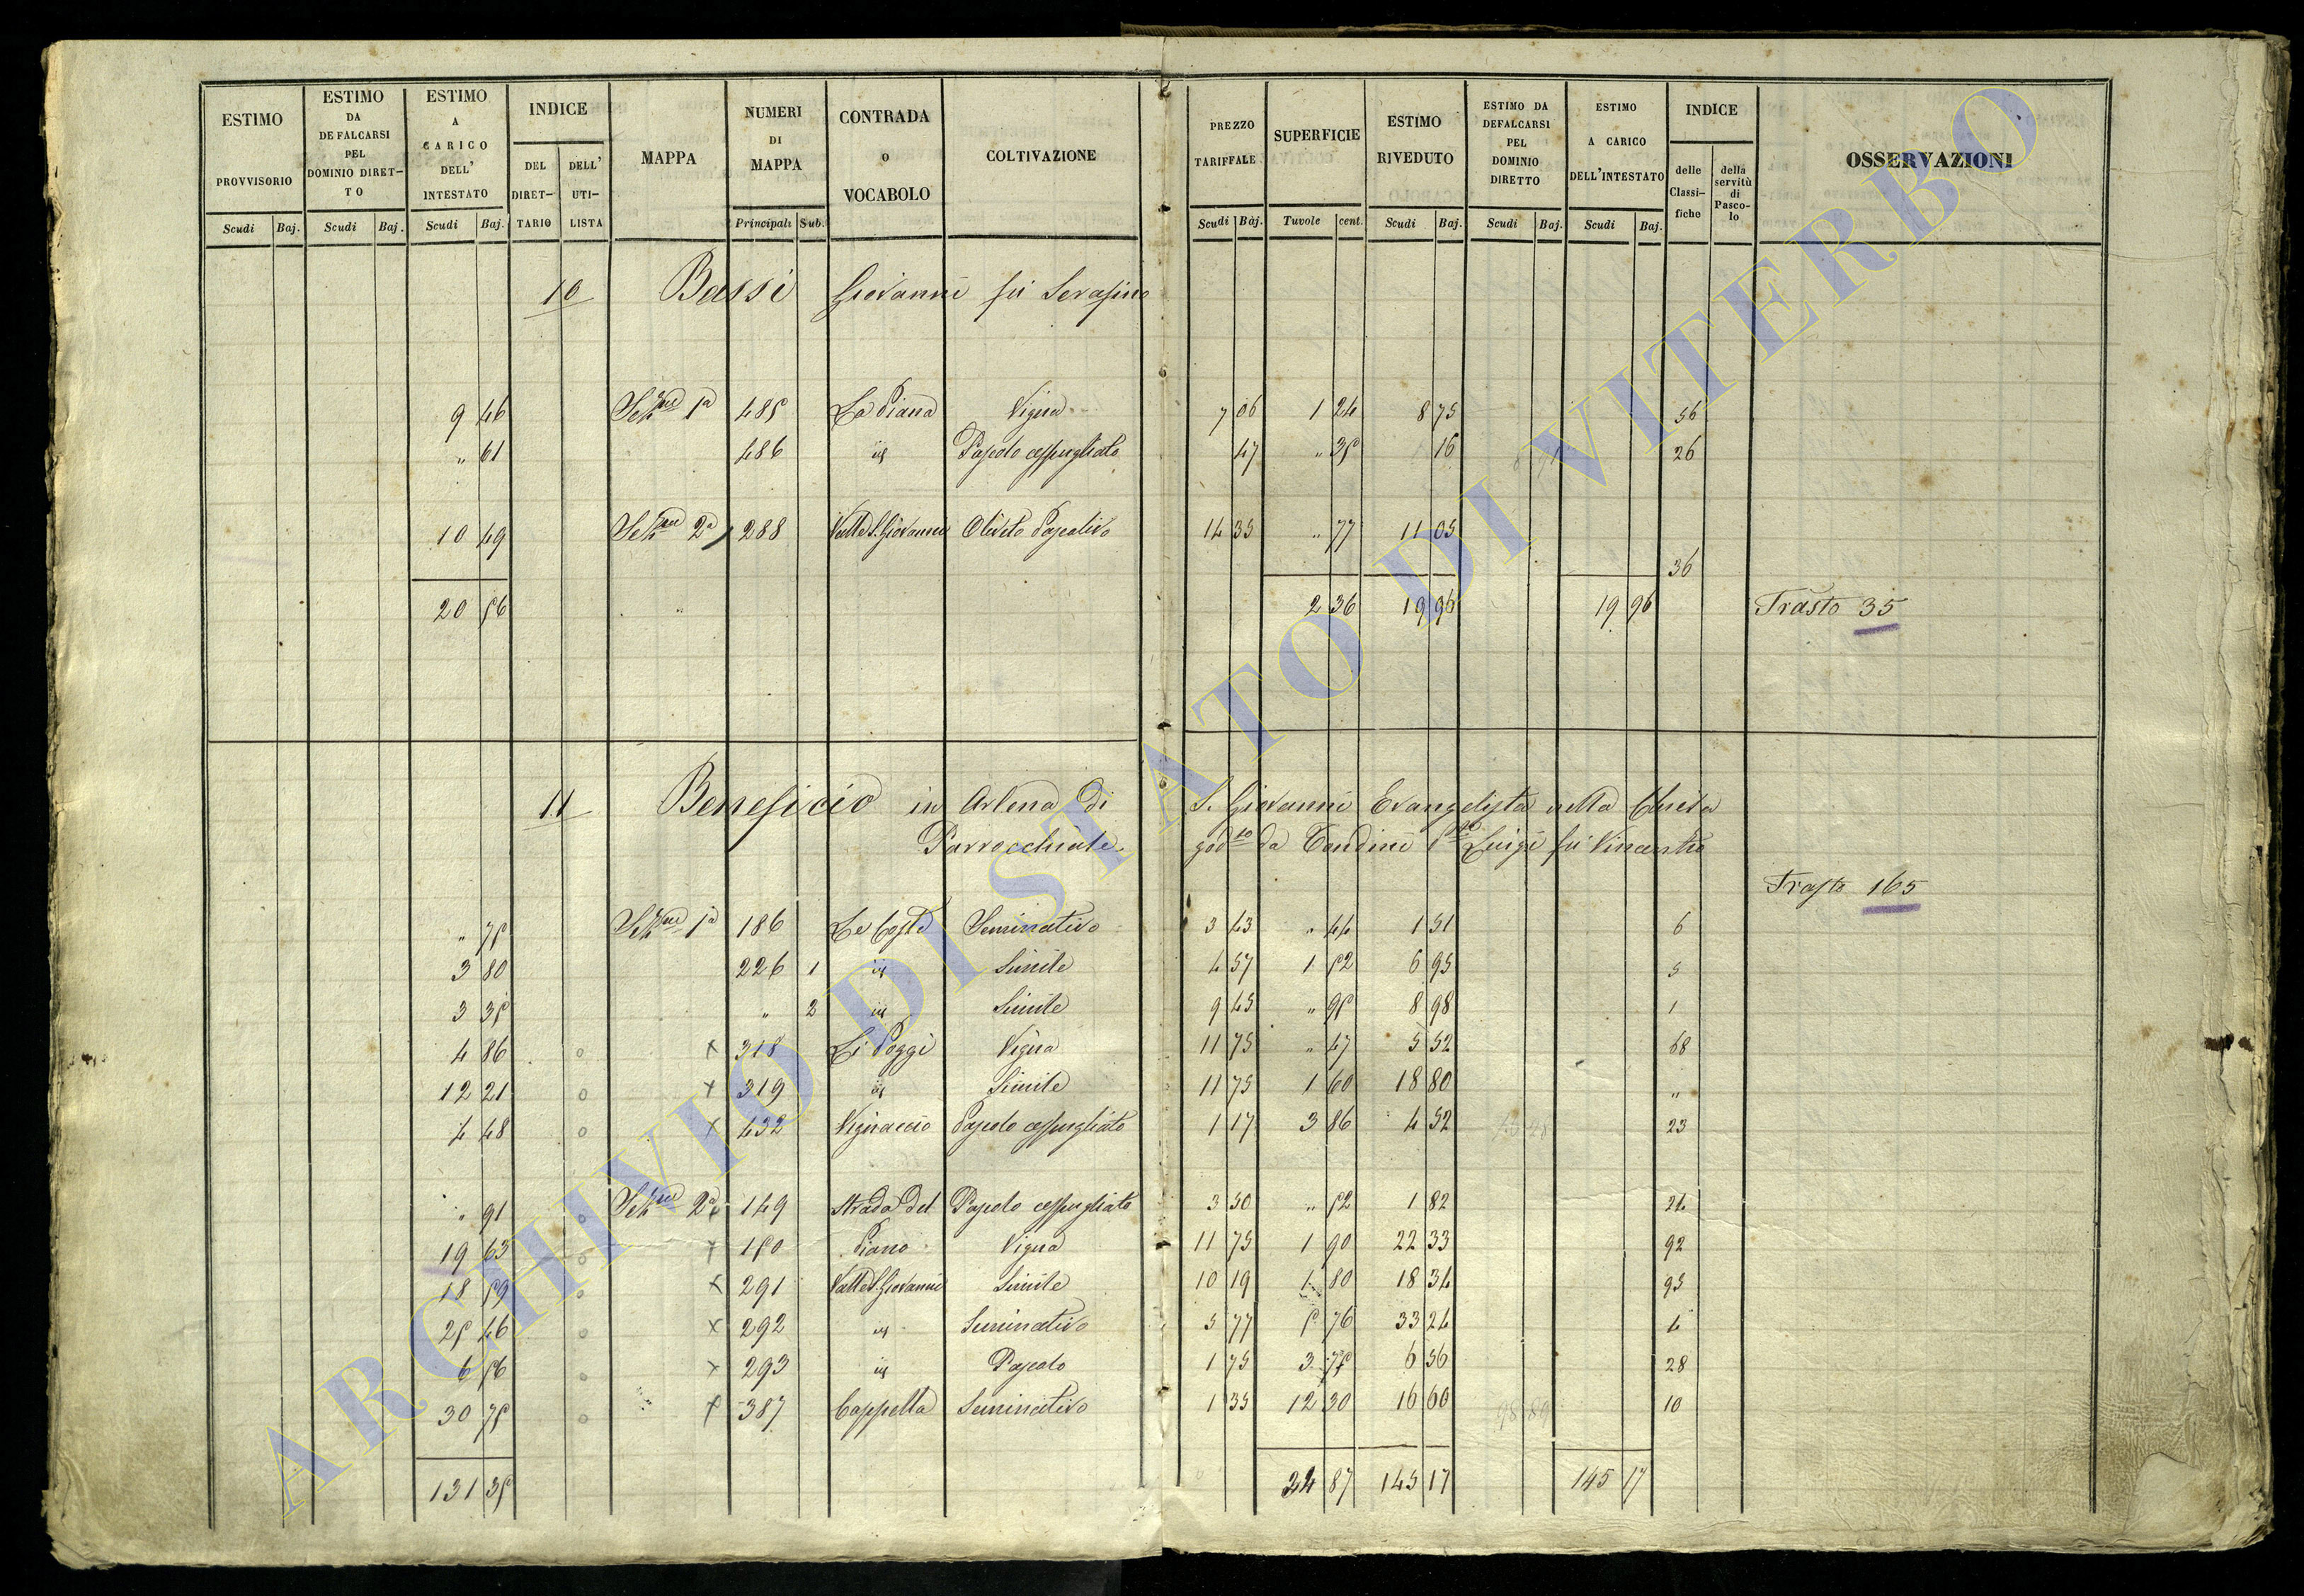 ESTIMO PROVVISORIO Scudi Baj.
ESTIMO DA DEFALCARSI PEL DOMINIO DIRET- TO Scudi Baj.
ESTIMO A CARICO DELL' INTESTATO Scudi Baj.
INDICE DEL DIRET- TARIO DELL' UTI- LISTA
MAPPA
NUMERI DI MAPPA Principali Sub.
CONTRADA o VOCABOLO
COLTIVAZIONE
PREZZO TARIFFALE Scudi Baj.
SUPERFICIE Tuvole cent.
ESTIMO RIVEDUTO Scudi Baj.
ESTIMO DA DEFALCARSI PEL DOMINIO DIRETTO Scudi Baj.
ESTIMO A CARICO DELL'INTESTATO Scudi Baj.
INDICE delle Classi- fiche della servitù di Pasco- lo
OSSERVAZIONI
10 Bassi Giovanni fu Serafino
9 46 Sezne 1a 485 La Piana Vigna 7 06 1 24 8 75 56
" 61 486 id Pascolo cespugliato 47 " 35 16 26
10 49 Sezne 2a 288 Valle S. Giovanni Oliveto Pascolivo 14 35 " 77 11 05
36
20 56 2 36 19 96 19 96 Trasto 35
11 Beneficio in Arlena di S. Giovanni Evangelista nella Chiesa
Parrocchiale godto da Tondini Luigi fu Vincenzo
Trasto 165
" 75 Sezne 1a 186 Le Coste Seminativo 3 43 " 44 1 51 6
3 80 226 1 id Simile 4 57 1 52 6 95 5
3 35 " 2 id Simile 9 45 " 95 8 98 1
4 86 x 318 Li Poggi Vigna 11 75 " 47 5 52 68
12 21 x 319 id Simile 11 75 1 60 18 80 "
4 48 x 432 Vignaccio Pascolo cespugliato 1 17 3 86 4 52 23
" 91 Sezne 2a x 149 Strada del Pascolo cespugliato 3 50 " 52 1 82 24
19 63 x 150 Piano Vigna 11 75 1 90 22 33 92
18 59 x 291 Valle S. Giovanni Simile 10 19 1 80 18 34 93
25 46 x 292 id Seminativo 5 77 5 76 33 24 4
6 56 x 293 id Pascolo 1 75 3 75 6 56 28
30 75 x 387 Cappella Seminativo 1 35 12 30 16 60 10
131 35 34 87 145 17 145 17
ARCHIVIO DI STATO DI VITERBO